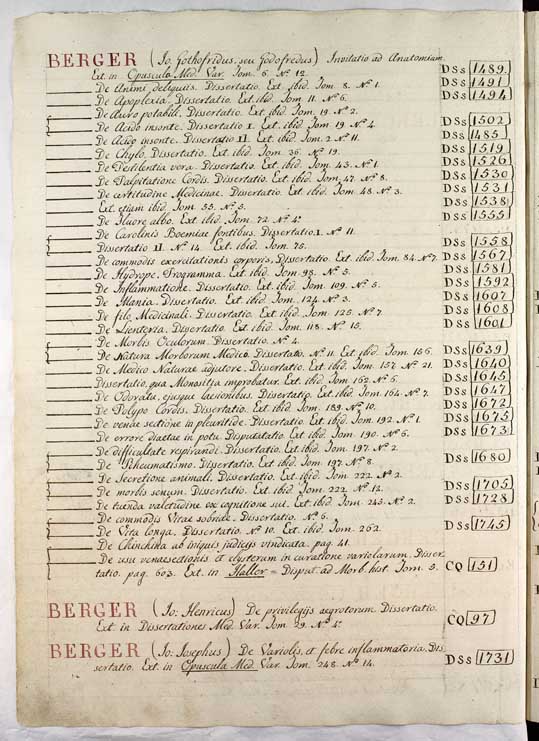 BERGER (Jo. Gothofridus, seu Godofredus) Invitatio ad Anatomiam.
Ext. in Opuscula Med. Var. Tom. 6. Nº 12. DSs 1489.
De Animi deliquiis. Dissertatio. Ext. ibid. Tom. 8. Nº 1. DSs 1491
De Apoplexia. Dissertatio. Ext. ibid. Tom. 11. Nº 6. DSs 1494
De Auro potabili. Dissertatio. Ext. ibid. Tom. 19. Nº 2.
De Acido insonte. Dissertatio I. Ext. ibid. Tom. 19. Nº 4. DSs 1502
De Acido insonte. Dissertatio II. Ext. ibid. Tom. 2. Nº 11. DSs 1485
De Chylo. Dissertatio. Ext. ibid. Tom. 36. Nº 19. DSs 1519
De Pestilentia vera. Dissertatio. Ext. ibid. Tom. 43. Nº 1. DSs 1526
De Palpitatione Cordis. Dissertatio. Ext. ibid. Tom. 47. Nº 8. DSs 1530
De certitudine Medicinae. Dissertatio. Ext. ibid. Tom. 48. Nº 3. DSs 1531
Ext. etiam ibid. Tom. 55. Nº 5. DSs 1538
De Fluore albo. Ext. ibid. Tom. 72. Nº 4. DSs 1555
De Carolinis Boemiae fontibus. Dissertatio I. Nº 11.
Dissertatio II. Nº 14. Ext. ibid. Tom. 75. DSs 1558
De commodis exercitationis corporis. Dissertatio. Ext. ibid. Tom. 84. Nº 7. DSs 1567
De Hydrope. Programma. Ext. ibid. Tom. 98. Nº 5. DSs 1581
De Inflammatione. Dissertatio. Ext. ibid. Tom. 109. Nº 5. DSs 1592
De Mania. Dissertatio. Ext. ibid. Tom. 124. Nº 3. DSs 1607
De filo Medicinali. Dissertatio. Ext. ibid. Tom. 125. Nº 7. DSs 1608
De Lienteria. Dissertatio. Ext. ibid. Tom. 118. Nº 15. DSs 1601
De Morbis Oculorum. Dissertatio. Nº 4.
De Natura Morborum Medico. Dissertatio. Nº 11. Ext. ibid. Tom. 156. DSs 1639
De Medico Naturae adjutore. Dissertatio. Ext. ibid. Tom. 157. Nº 21. DSs 1640
Dissertatio, qua Monsitja improbatur. Ext. ibid. Tom. 162. Nº 6. DSs 1645
De Odoratu, ejusque laesionibus. Dissertatio. Ext. ibid. Tom. 164. Nº 7. DSs 1647
De Polypo Cordis. Dissertatio. Ext. ibid. Tom. 189. Nº 10. DSs 1672
De venae sectione in pleuritide. Dissertatio. Ext. ibid. Tom. 192. Nº 1. DSs 1675
De errore diaetae in potu. Disputatio. Ext. ibid. Tom. 190. Nº 6. DSs 1673
De difficultate respirandi. Dissertatio. Ext. ibid. Tom. 197. Nº 2.
De Rheumatismo. Dissertatio. Ext. ibid. Tom. 197. Nº 8. DSs 1680
De Secretione animali. Dissertatio. Ext. ibid. Tom. 222. Nº 2.
De morbis senum. Dissertatio. Ext. ibid. Tom. 222. Nº 12. DSs 1705
De tuenda valetudine ex cognitione sui. Ext. ibid. Tom. 245. Nº 2. DSs 1728
De commodis Vitae sobriae. Dissertatio. Nº 6.
De Vita longa. Dissertatio. Nº 10. Ext. ibid. Tom. 262. DSs 1745
De Chinchina ab iniquis judiciis vindicata. pag. 41.
De usu venaesectionis et clysterum in curatione variolarum. Disser-
tatio. pag. 603. Ext. in Haller = Disput. ad Morb. hist. Tom. 5. CQ 151
BERGER (Jo: Henricus) De privilegijs aegrotorum. Dissertatio.
Ext. in Dissertationes Med. Var. Tom. 29. Nº 4. CQ 97
BERGER (Jo: Josephus) De Variolis, et febre inflammatoria. Dis-
sertatio. Ext. in Opuscula Med. Var. Tom. 248. Nº 14. DSs 1731